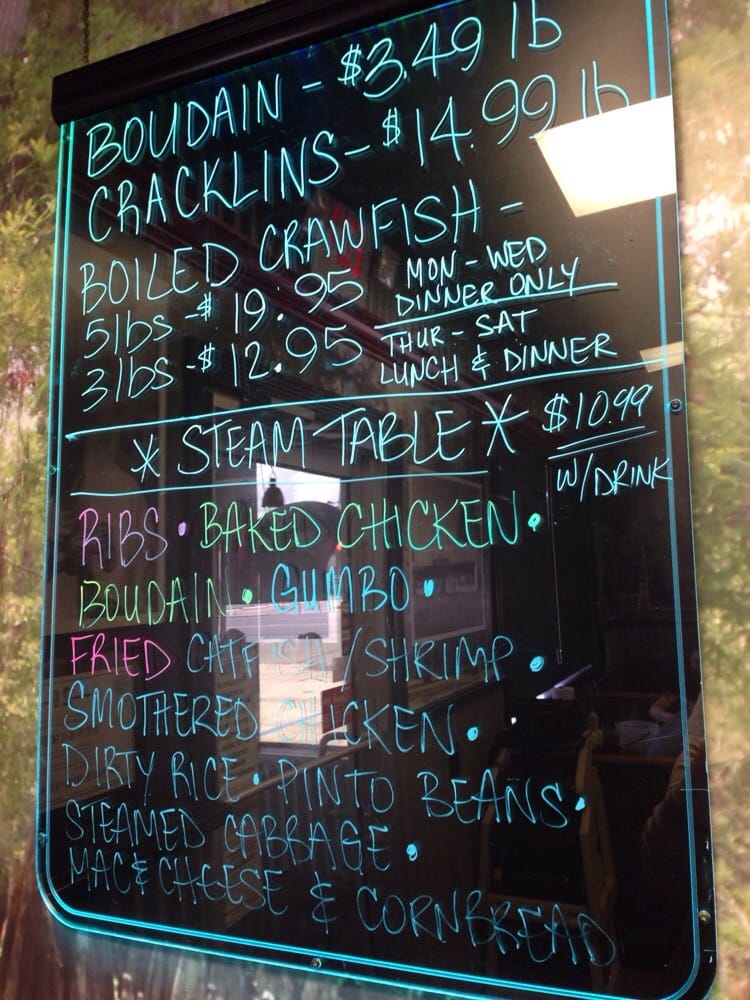 BOUDAIN - $3.49 lb
CRACKLINS - $14.99 lb
BOILED CRAWFISH -
5lbs - $19.95
3lbs - $12.95
MON - WED
DINNER ONLY
THUR - SAT
LUNCH & DINNER
* STEAM TABLE * $10.99
W/DRINK
RIBS • BAKED CHICKEN •
BOUDAIN • GUMBO •
FRIED CATFISH/SHRIMP •
SMOTHERED CHICKEN •
DIRTY RICE • PINTO BEANS •
STEAMED CABBAGE •
MAC & CHEESE & CORNBREAD